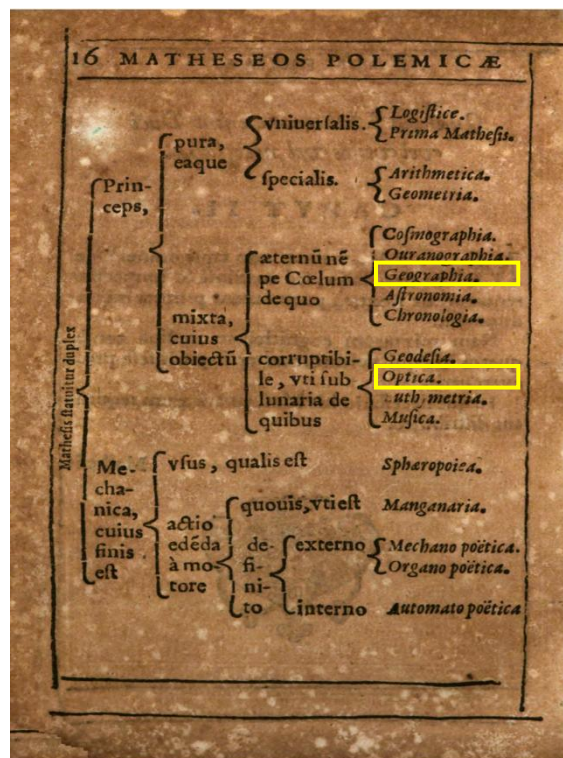 16 MATHESEOS POLEMICÆ
Mathesis statuitur duplex
Prin-
ceps,
pura,
eaque
vniuersalis.
Logistice.
Prima Mathesis.
specialis.
Arithmetica.
Geometria.
mixta,
cuius
obiectū
æternū nē
pe Cœlum
de quo
Cosmographia.
Ouranographia.
Geographia.
Astronomia.
Chronologia.
corruptibi-
le, vti sub
lunaria de
quibus
Geodesia.
Optica.
uthmetria.
Musica.
Me-
cha-
nica,
cuius
finis
est
vsus, qualis est
Sphæropoiea.
actio
edēda
à mo-
tore
quouis, vti est
Manganaria.
de-
fi-
ni-
to
externo
Mechano poëtica.
Organo poëtica.
interno
Automato poëtica